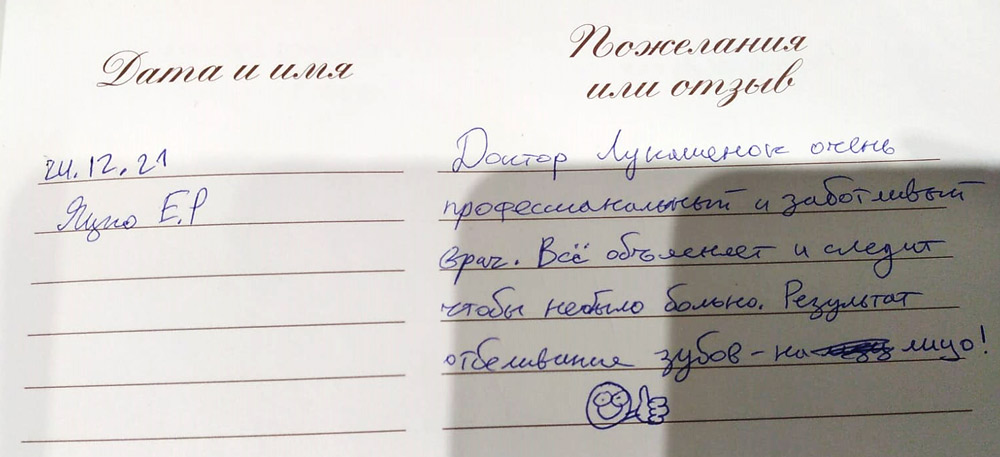 Дата и имя
Пожелания
или отзыв
24.12.21
Е.Р
Доктор Лукашенок очень
профессиональный и заботливый
врач. Всё объясняет и следит
чтобы небыло больно. Результат
отбеливания зубов - на лицо!